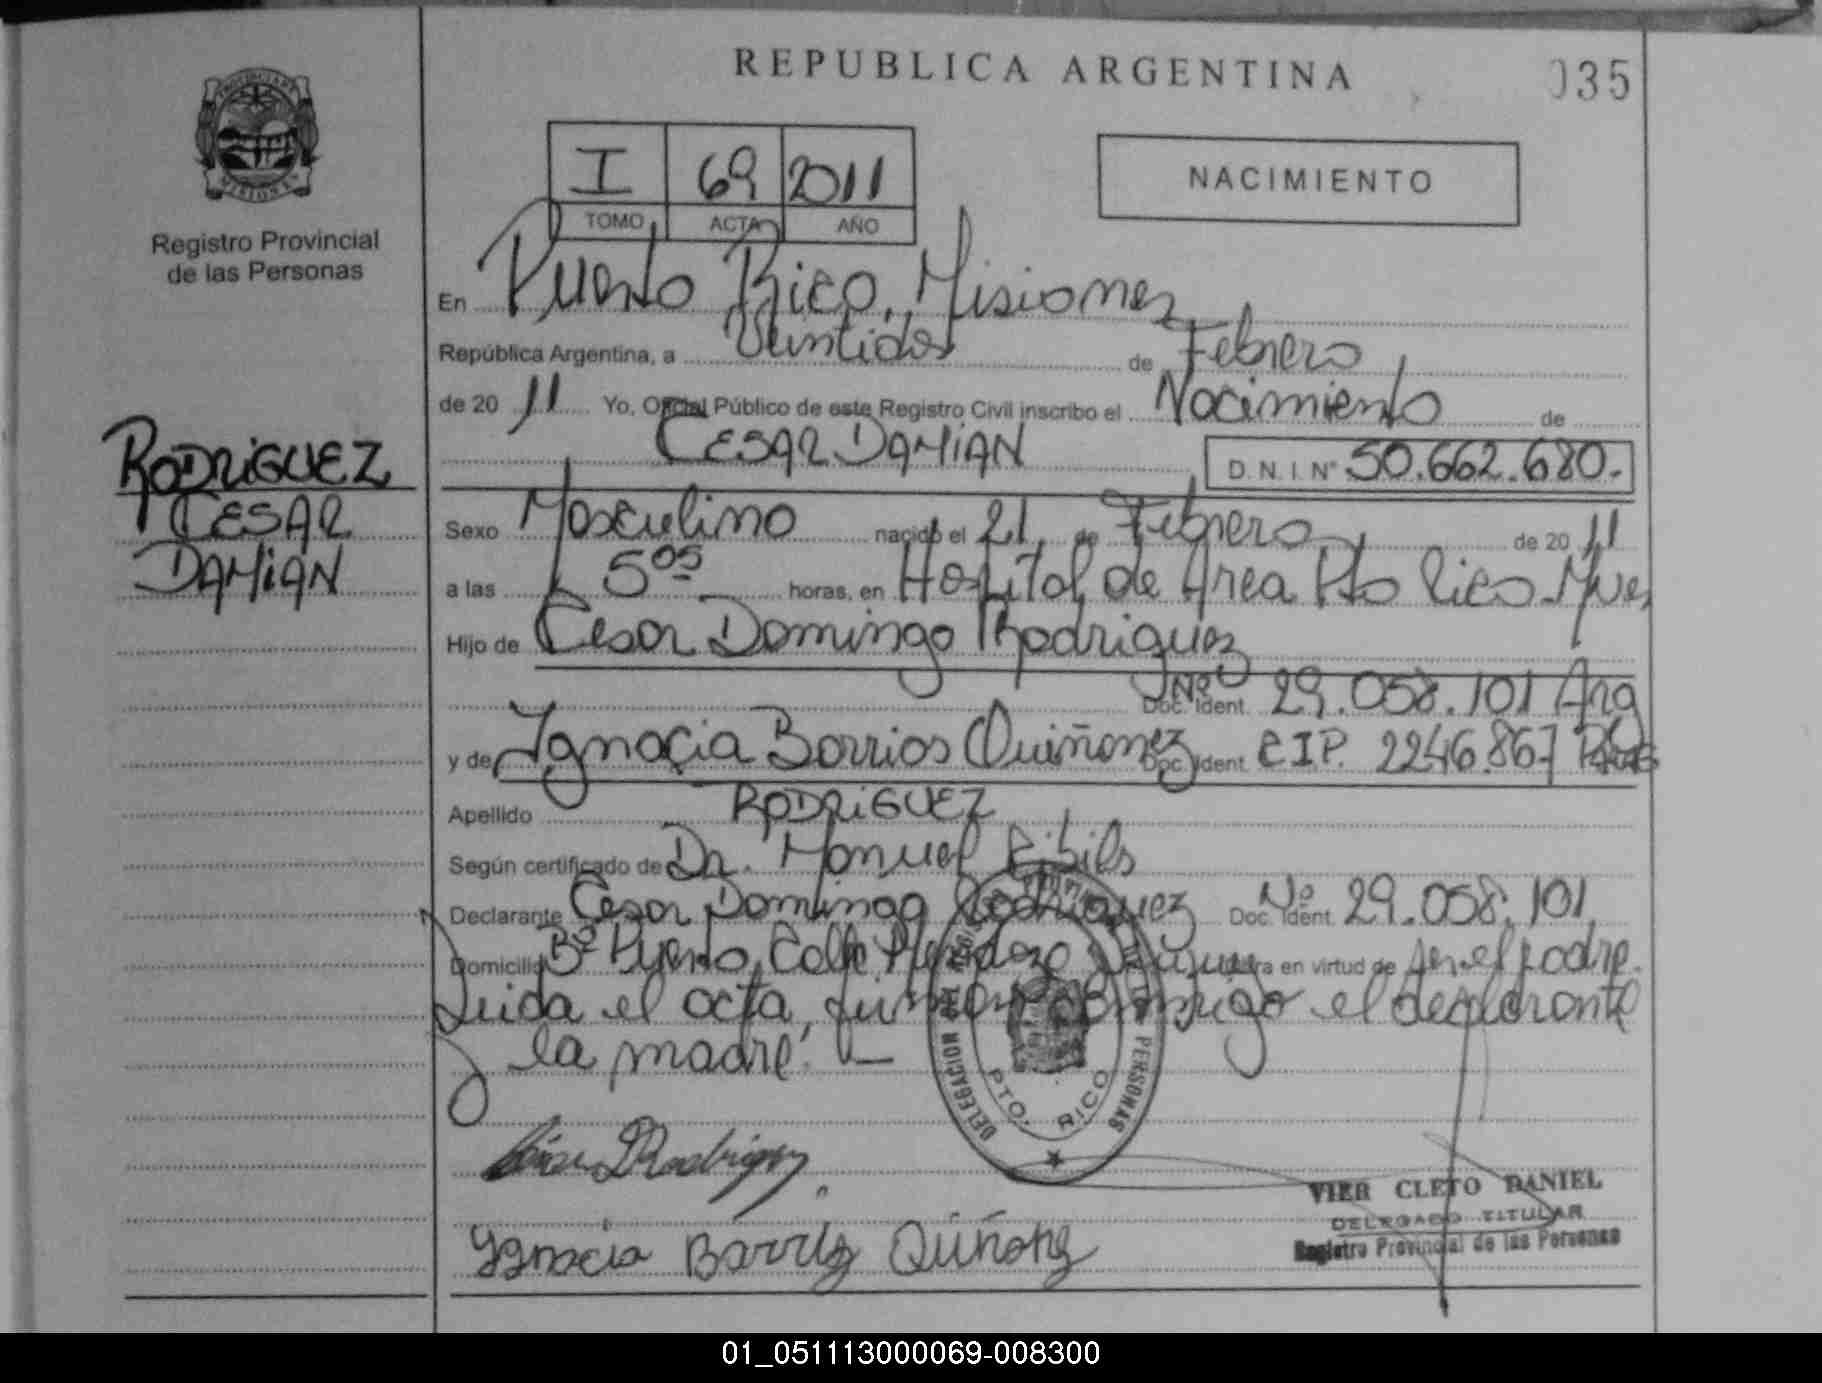 REPUBLICA ARGENTINA
035
PROVINCIA DE MISIONES
Registro Provincial
de las Personas
I 69 2011
TOMO ACTA AÑO
NACIMIENTO
En Puerto Rico, Misiones
República Argentina, a Veintidos de Febrero
de 20 11 Yo, Oficial Público de este Registro Civil inscribo el Nacimiento de
CESAR DAMIAN D.N.I. Nº 50.662.680.-
RODRIGUEZ
CESAR
DAMIAN
Sexo Masculino nacido el 21 de Febrero de 20 11
a las 5 05 horas, en Hospital de Area Pto Rico Mnes
Hijo de Cesar Domingo Rodriguez
Doc. Ident. Nº 29.058.101 Arg
y de Ignacia Barrios Quiñonez Doc. Ident. C.I.P. 2246.867
Apellido RODRIGUEZ
Según certificado de Dr. Manuel
Declarante Cesar Domingo Rodriguez Doc. Ident. Nº 29.058.101
Domicilio Bº Puerto, Calle en virtud de ser el padre.
Leida el acta, firman conmigo el declarante
y la madre.-
DELEGACION PERSONAS
PTO. RICO
Cesar D Rodriguez
Ygnacia Barrios Quiñonez
VIER CLETO DANIEL
DELEGADO TITULAR
Registro Provincial de las Personas
01_051113000069-008300